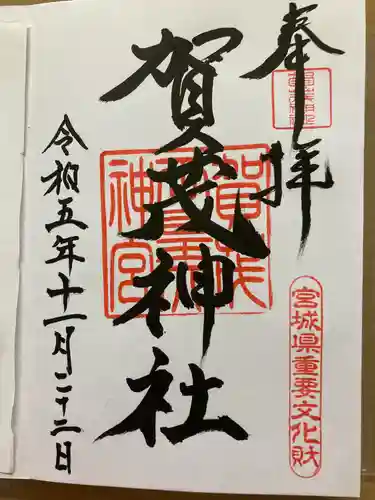 奉拝
宮城県重要文化財
賀茂神社
令和五年十一月二十二日